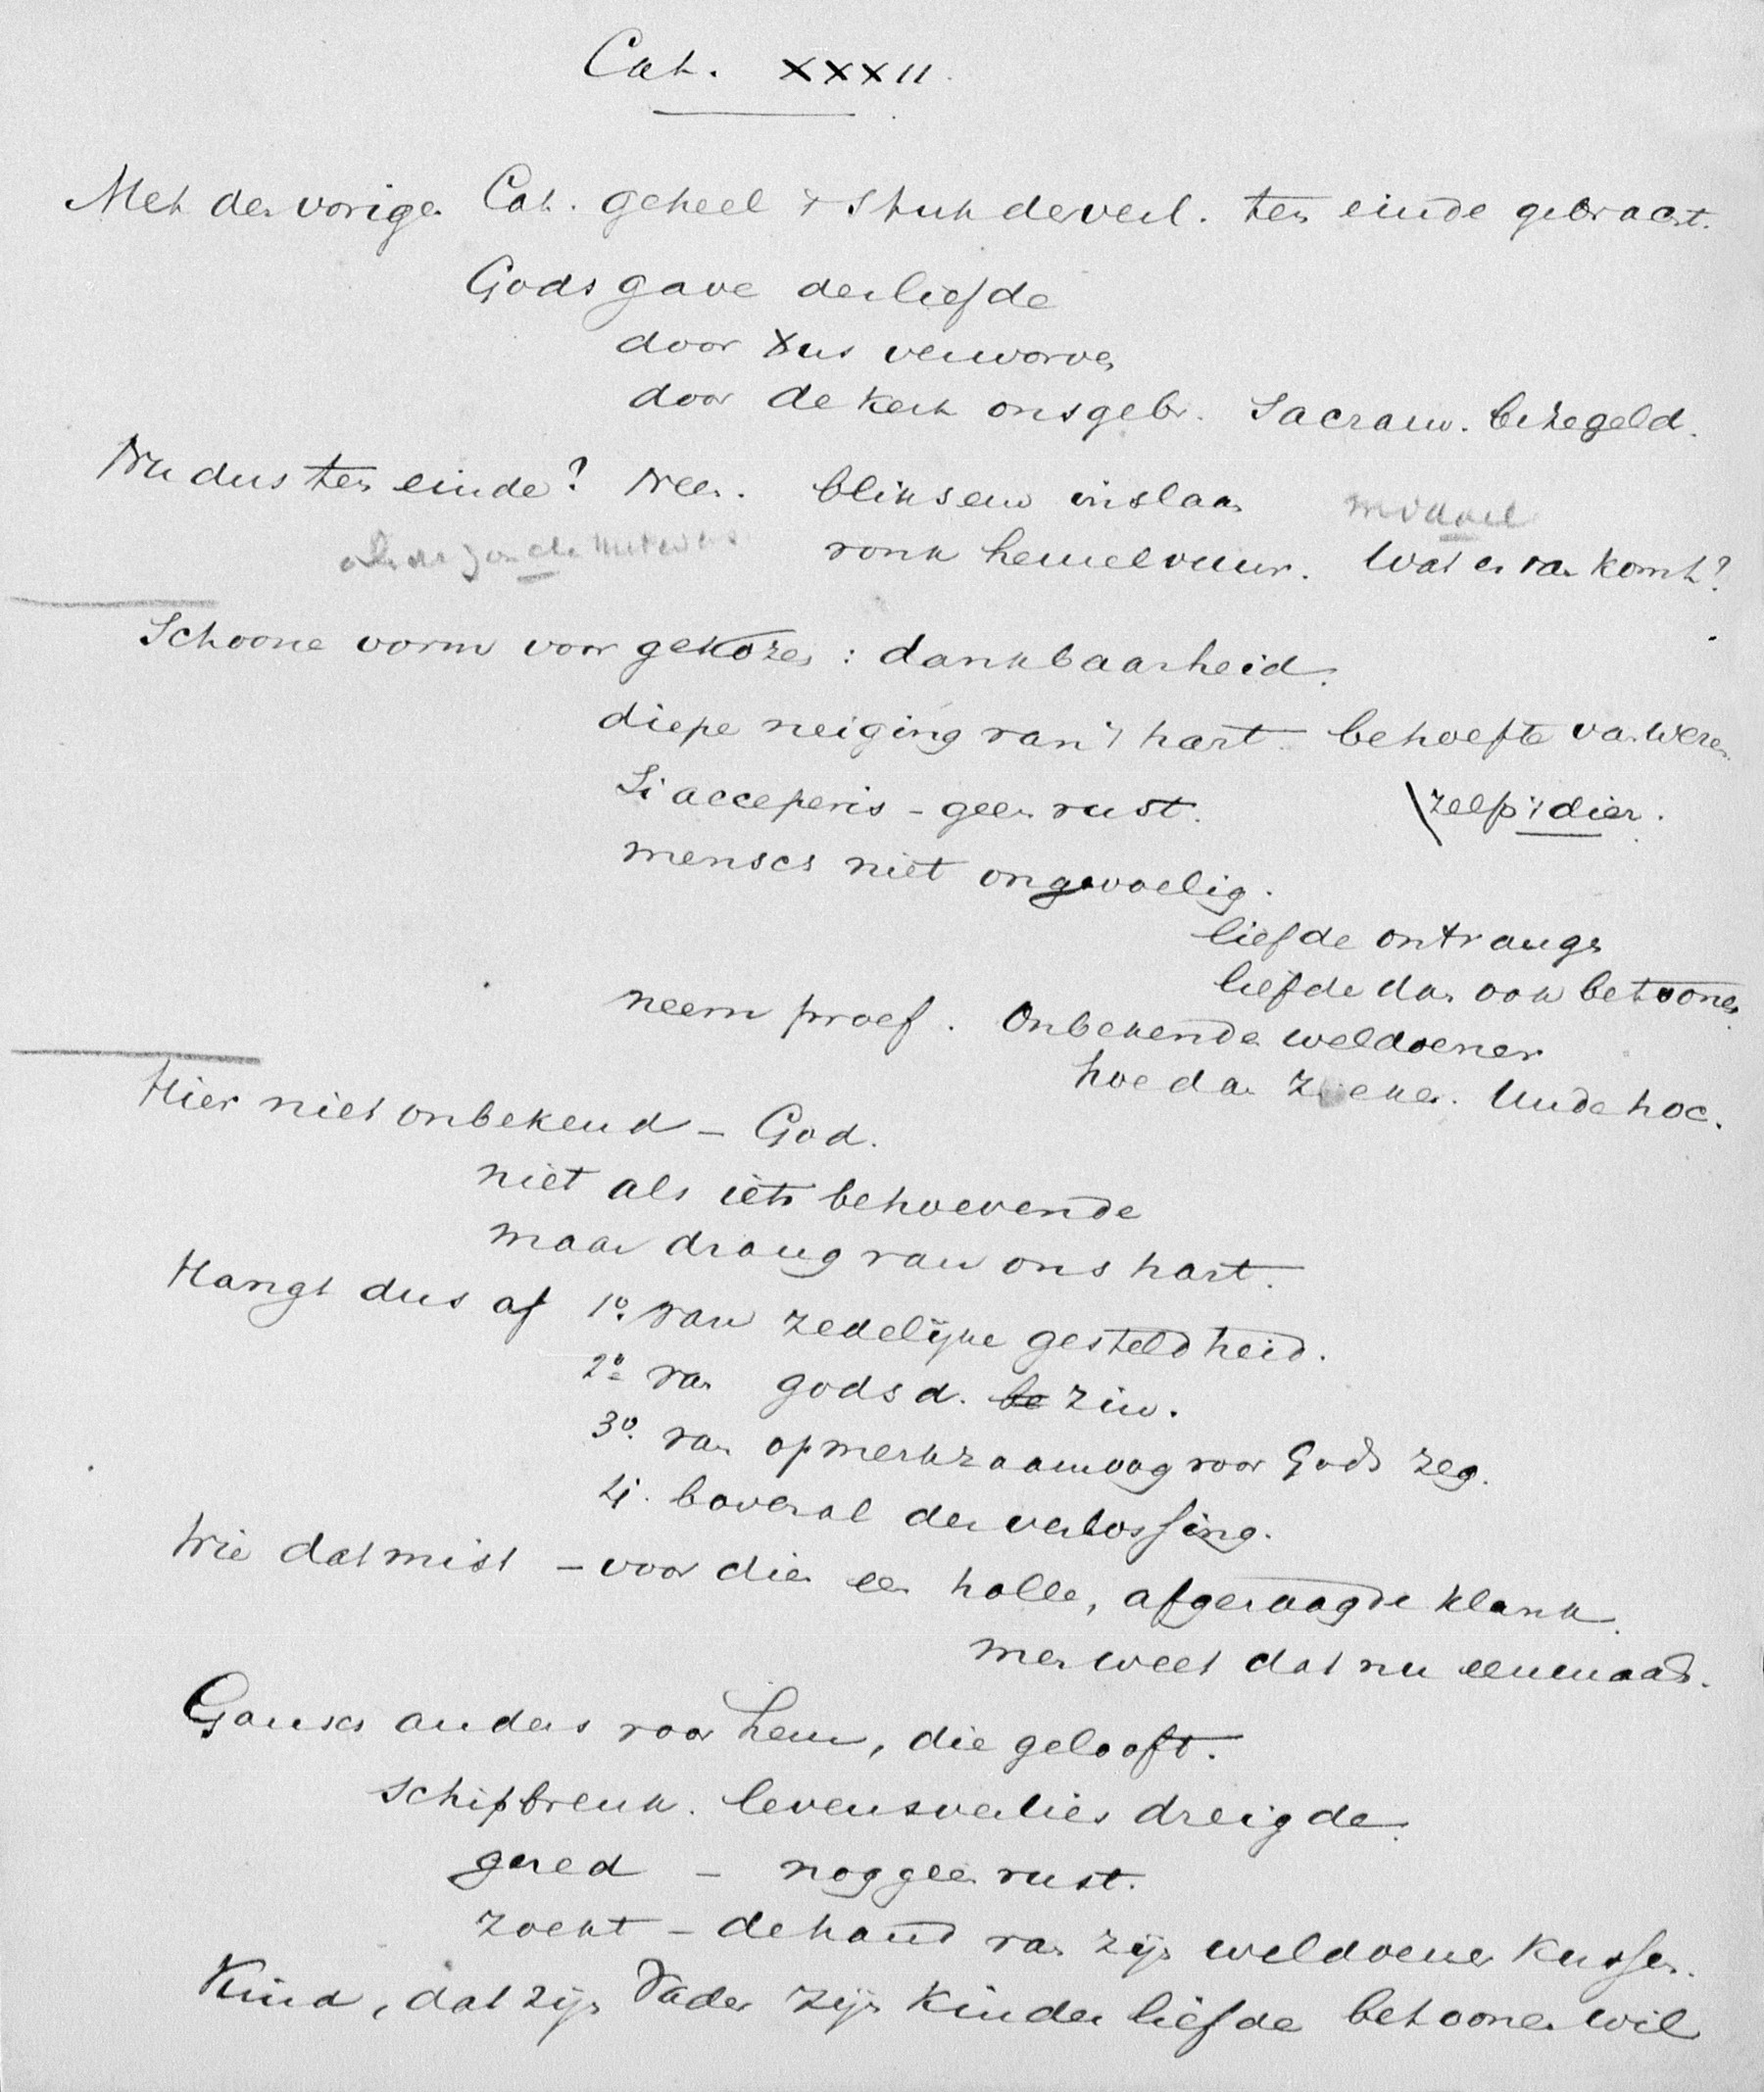 Cat. XXXII.
Met den vorigen Cat. geheel 't stuk der verl. ten einde gebracht.
Gods gave der liefde
door Xus verworven
door de kerk ons gebr. Sacram. bezegeld.
Nu dus ten einde? Neen. bliksem inslaan middel
vonk hemelvuur. Wat er van komt?
Schoone vorm voor gekozen: dankbaarheid.
diepe neiging van 't hart. behoefte van wezen
Si acceperis - geen rust. zelfs 't dier.
mensch niet ongevoelig.
liefde ontvangen
liefde dan ook betoonen
neem proef. Onbekende weldoener
hoe dan zoeken. Unde hoc.
Hier niet onbekend - God.
niet als iets behoevende
maar drang van ons hart.
Hangt dus af 1º. van zedelijke gesteldheid.
2º van godsd. be zin.
3º. van opmerkzaam oog voor Gods zeg.
4. bovenal der verlossing.
Wie dat mist - voor dien een holle, afgezaagde klank.
men weet dat nu eenmaal.
Gansch anders voor hem, die gelooft.
schipbreuk. levensverlies dreigde.
gered - nog geen rust.
zoekt - de hand van zijn weldoener kussen.
Kind, dat zijn Vader zijn kinderliefde betoonen wil